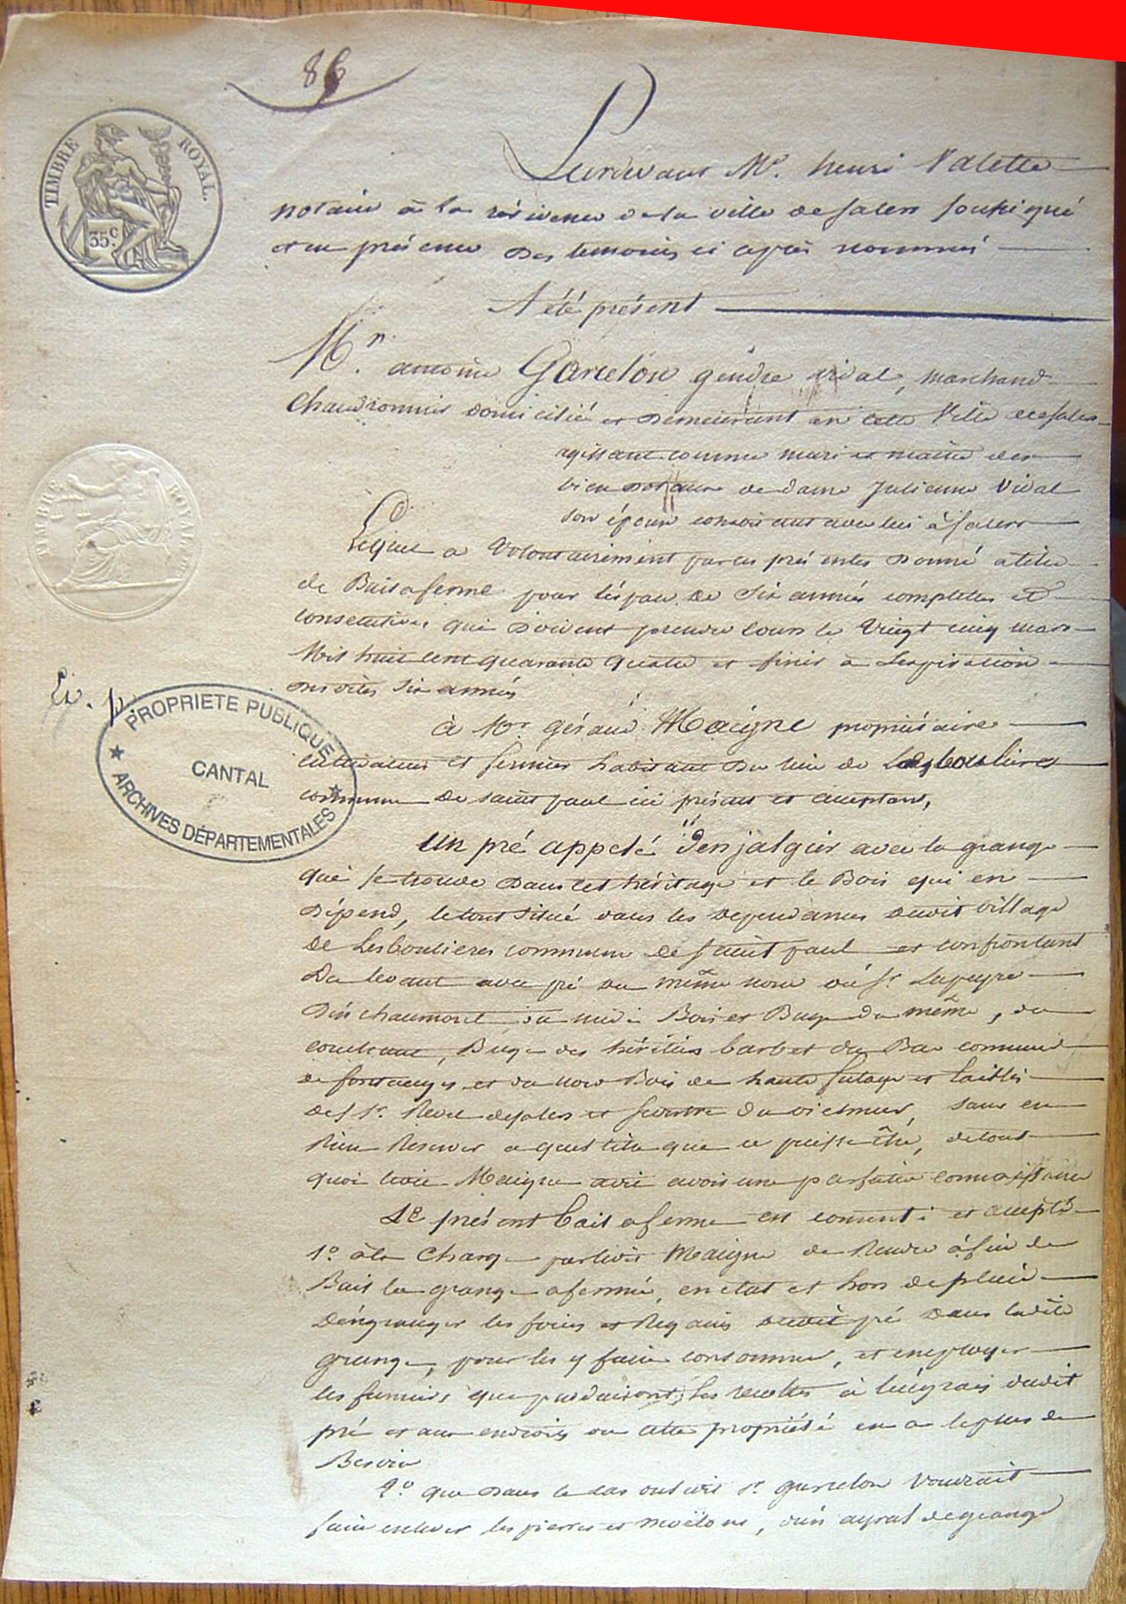 86
TIMBRE ROYAL.
35c
Pardevant Me. henri Valette
notaire à la résidence de la ville de Salers soussigné
et en présence des temoins ci après nommés
A été présent
Mr. antoine Garcelon gendre vidal, marchand
Chaudronnier domicilié et demeurant en cette Ville de Salers
agissant comme mari et maître des
bien dotaux de dame Julienne Vidal
son épouse demeurant avec lui à Salers
Lequel a Volontairement par ces présentes donné a titre
de Bail a ferme pour l'espace de Six années complettes et
consecutives qui doivent prendre cours le Vingt cinq mars
Mil huit cent quarante quatre et finir à l'expiration
desdites six années
à Mr. géraud Maigne propriétaire
cultivateur et fermier habitant du lieu de Lesboulieres
commune de saint paul ici présent et acceptant,
PROPRIETE PUBLIQUE
CANTAL
ARCHIVES DÉPARTEMENTALES
TIMBRE ROYAL
Un pré appelé denjalguir avec la grange
qui se trouve dans cet héritage et le Bois qui en
Dépend, le tout situé dans les dependances dudit village
de Lesboulieres commune de saint paul et confrontant
Du levant avec pré du même nom du Sr. Lapeyre
D'enchaumont du midi Bois et Buge du même, du
couchant, Buge des héritiers barbet du Bac commune
de fontanges et du nord Bois de haute futaye et taillis
de Sr. de Salers et du vielmur, sans en
Rien Reserver a quel titre que ce puisse être, de tout
quoi ledit Maigne a dit avoir une parfaite connaissance
Le présent bail a ferme est consenti et accepté
1o. à la charge par ledit Maigne de Rendre à fin de
Bail la grange afermée, en état et hors de pluie
D'engranger les foins et Regains dudit pré dans ladite
grange, pour les y faire consommer, et employer
les fumiers que produiront les recoltes à l'engrais dudit
pré et aux endroits ou cette propriété en a le plus de
Besoin
2o. que dans le cas ou ledit Sr. garcelon Voudrait
faire enlever les pierres et moëlons, d'un ayral de grange